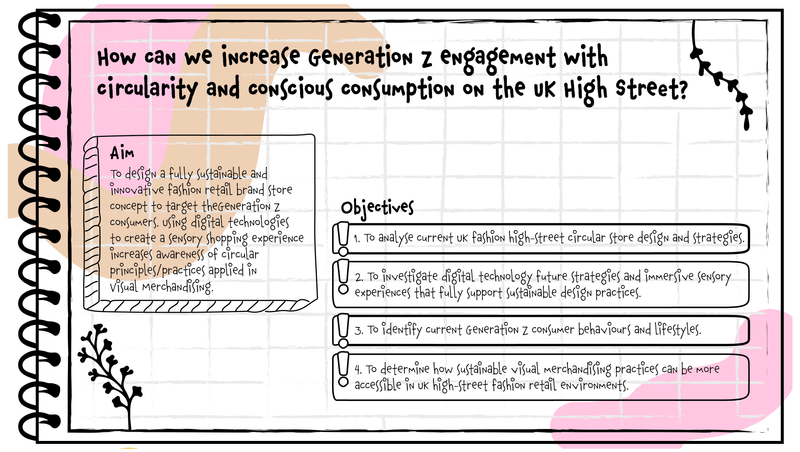 How can we increase Generation Z engagement with
circularity and conscious consumption on the UK High Street?
Aim
To design a fully sustainable and
innovative fashion retail brand store
concept to target theGeneration Z
consumers. Using digital technologies
to create a sensory shopping experience
increases awareness of circular
principles/practices applied in
Visual Merchandising.
Objectives
1. To analyse current UK fashion high-street circular store design and strategies.
2. To investigate digital technology future strategies and immersive sensory
experiences that fully support sustainable design practices.
3. To identify current Generation Z consumer behaviours and lifestyles.
4. To determine how sustainable visual merchandising practices can be more
accessible in UK high-street fashion retail environments.